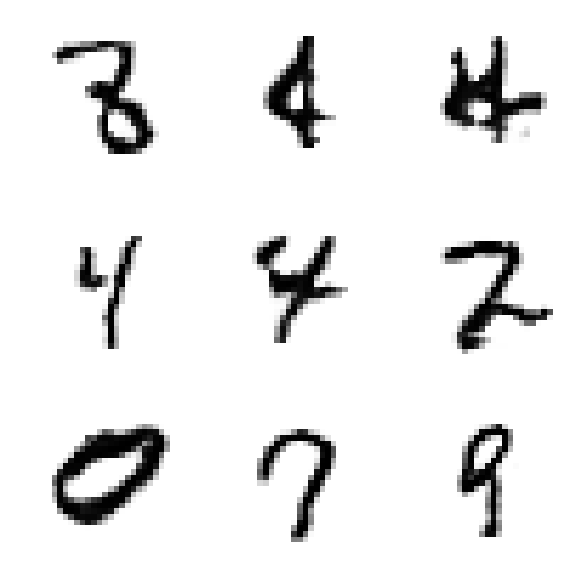 3 4 4
4 4 2
0 7 9